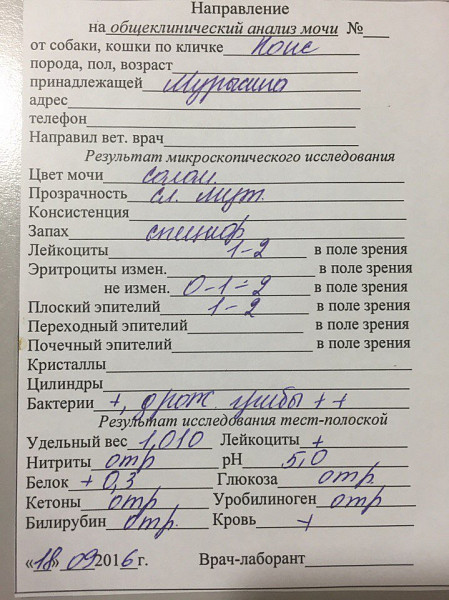 Направление
на общеклинический анализ мочи №___
от собаки, кошки по кличке
порода, пол, возраст
принадлежащей
адрес
телефон
Направил вет. врач
Результат микроскопического исследования
Цвет мочи солом
Прозрачность сл. мут.
Консистенция
Запах специф
Лейкоциты 1-2 в поле зрения
Эритроциты измен. в поле зрения
не измен. 0-1-2 в поле зрения
Плоский эпителий 1-2 в поле зрения
Переходный эпителий в поле зрения
Почечный эпителий в поле зрения
Кристаллы
Цилиндры
Бактерии +, дрож. грибы ++
Результат исследования тест-полоской
Удельный вес 1,010 Лейкоциты +
Нитриты отр pH 5,0
Белок +0,3 Глюкоза отр
Кетоны отр Уробилиноген отр
Билирубин отр. Кровь +
«18» 09 2016 г. Врач-лаборант